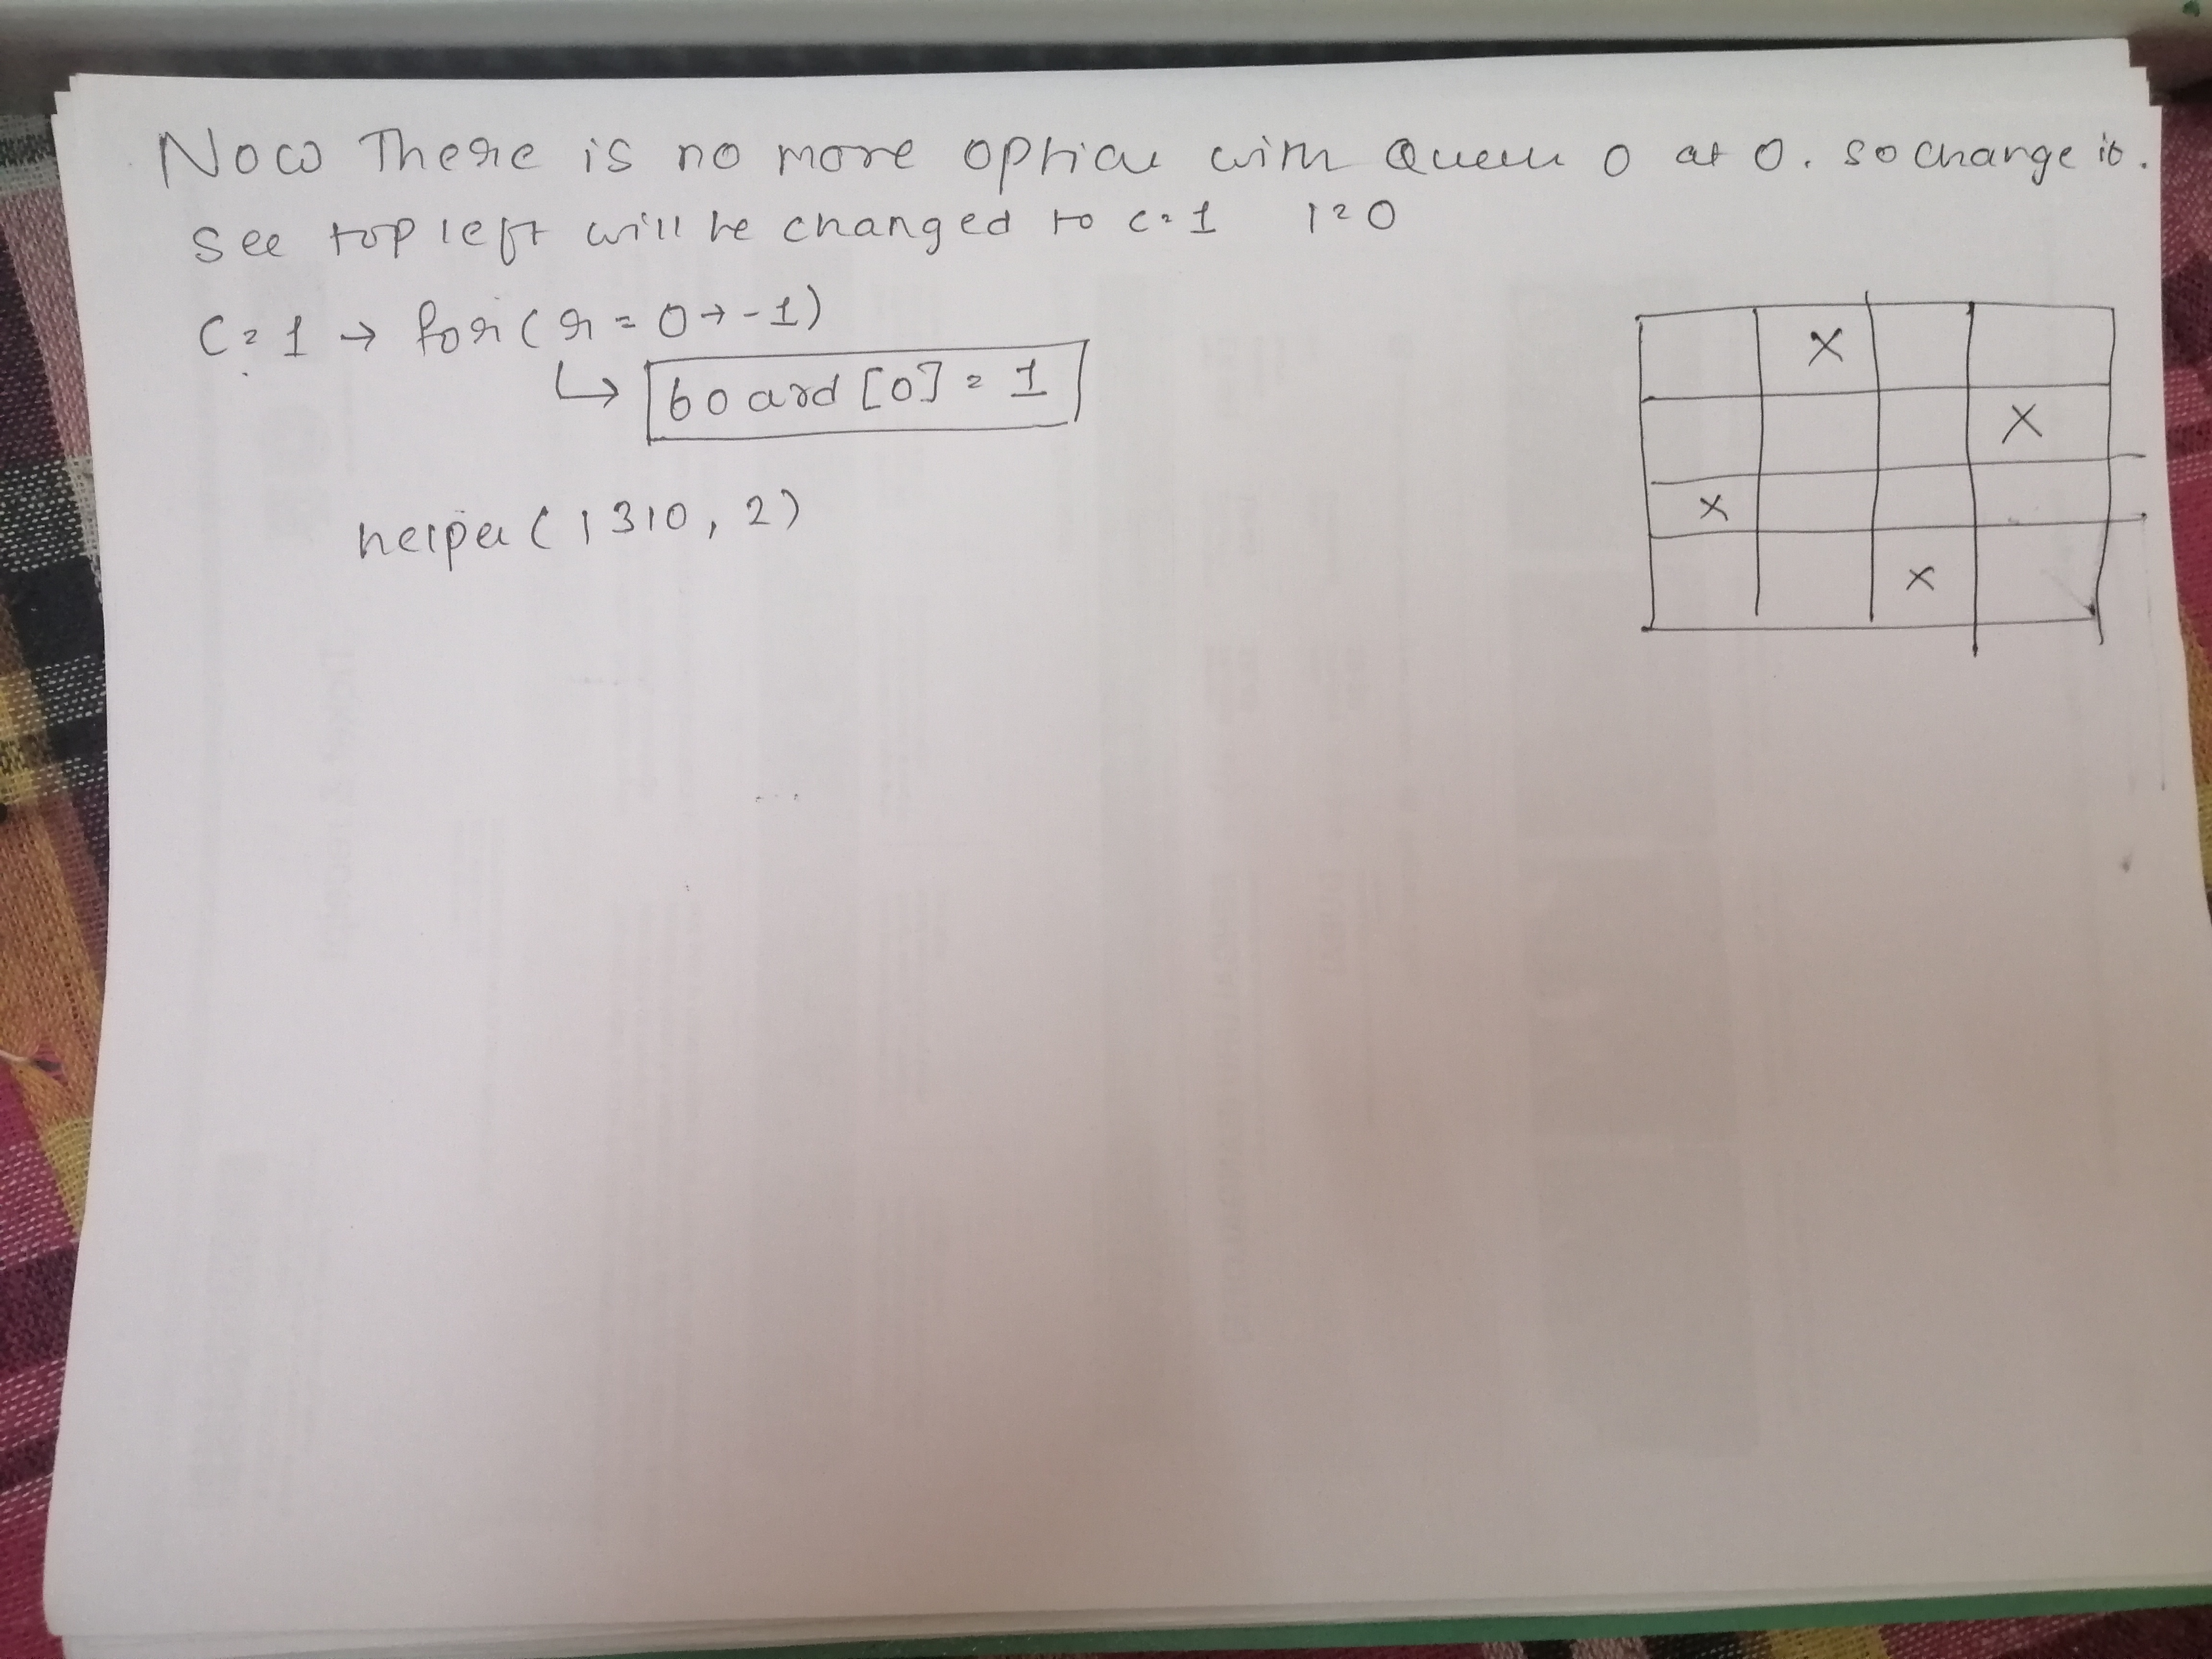 Now There is no more option with Queen 0 at 0. so change it.
see top left will be changed to c=1 i=0
C=1 → for(r=0→-1)
↳ board[0] = 1
helper(1310, 2)
X
X
X
X